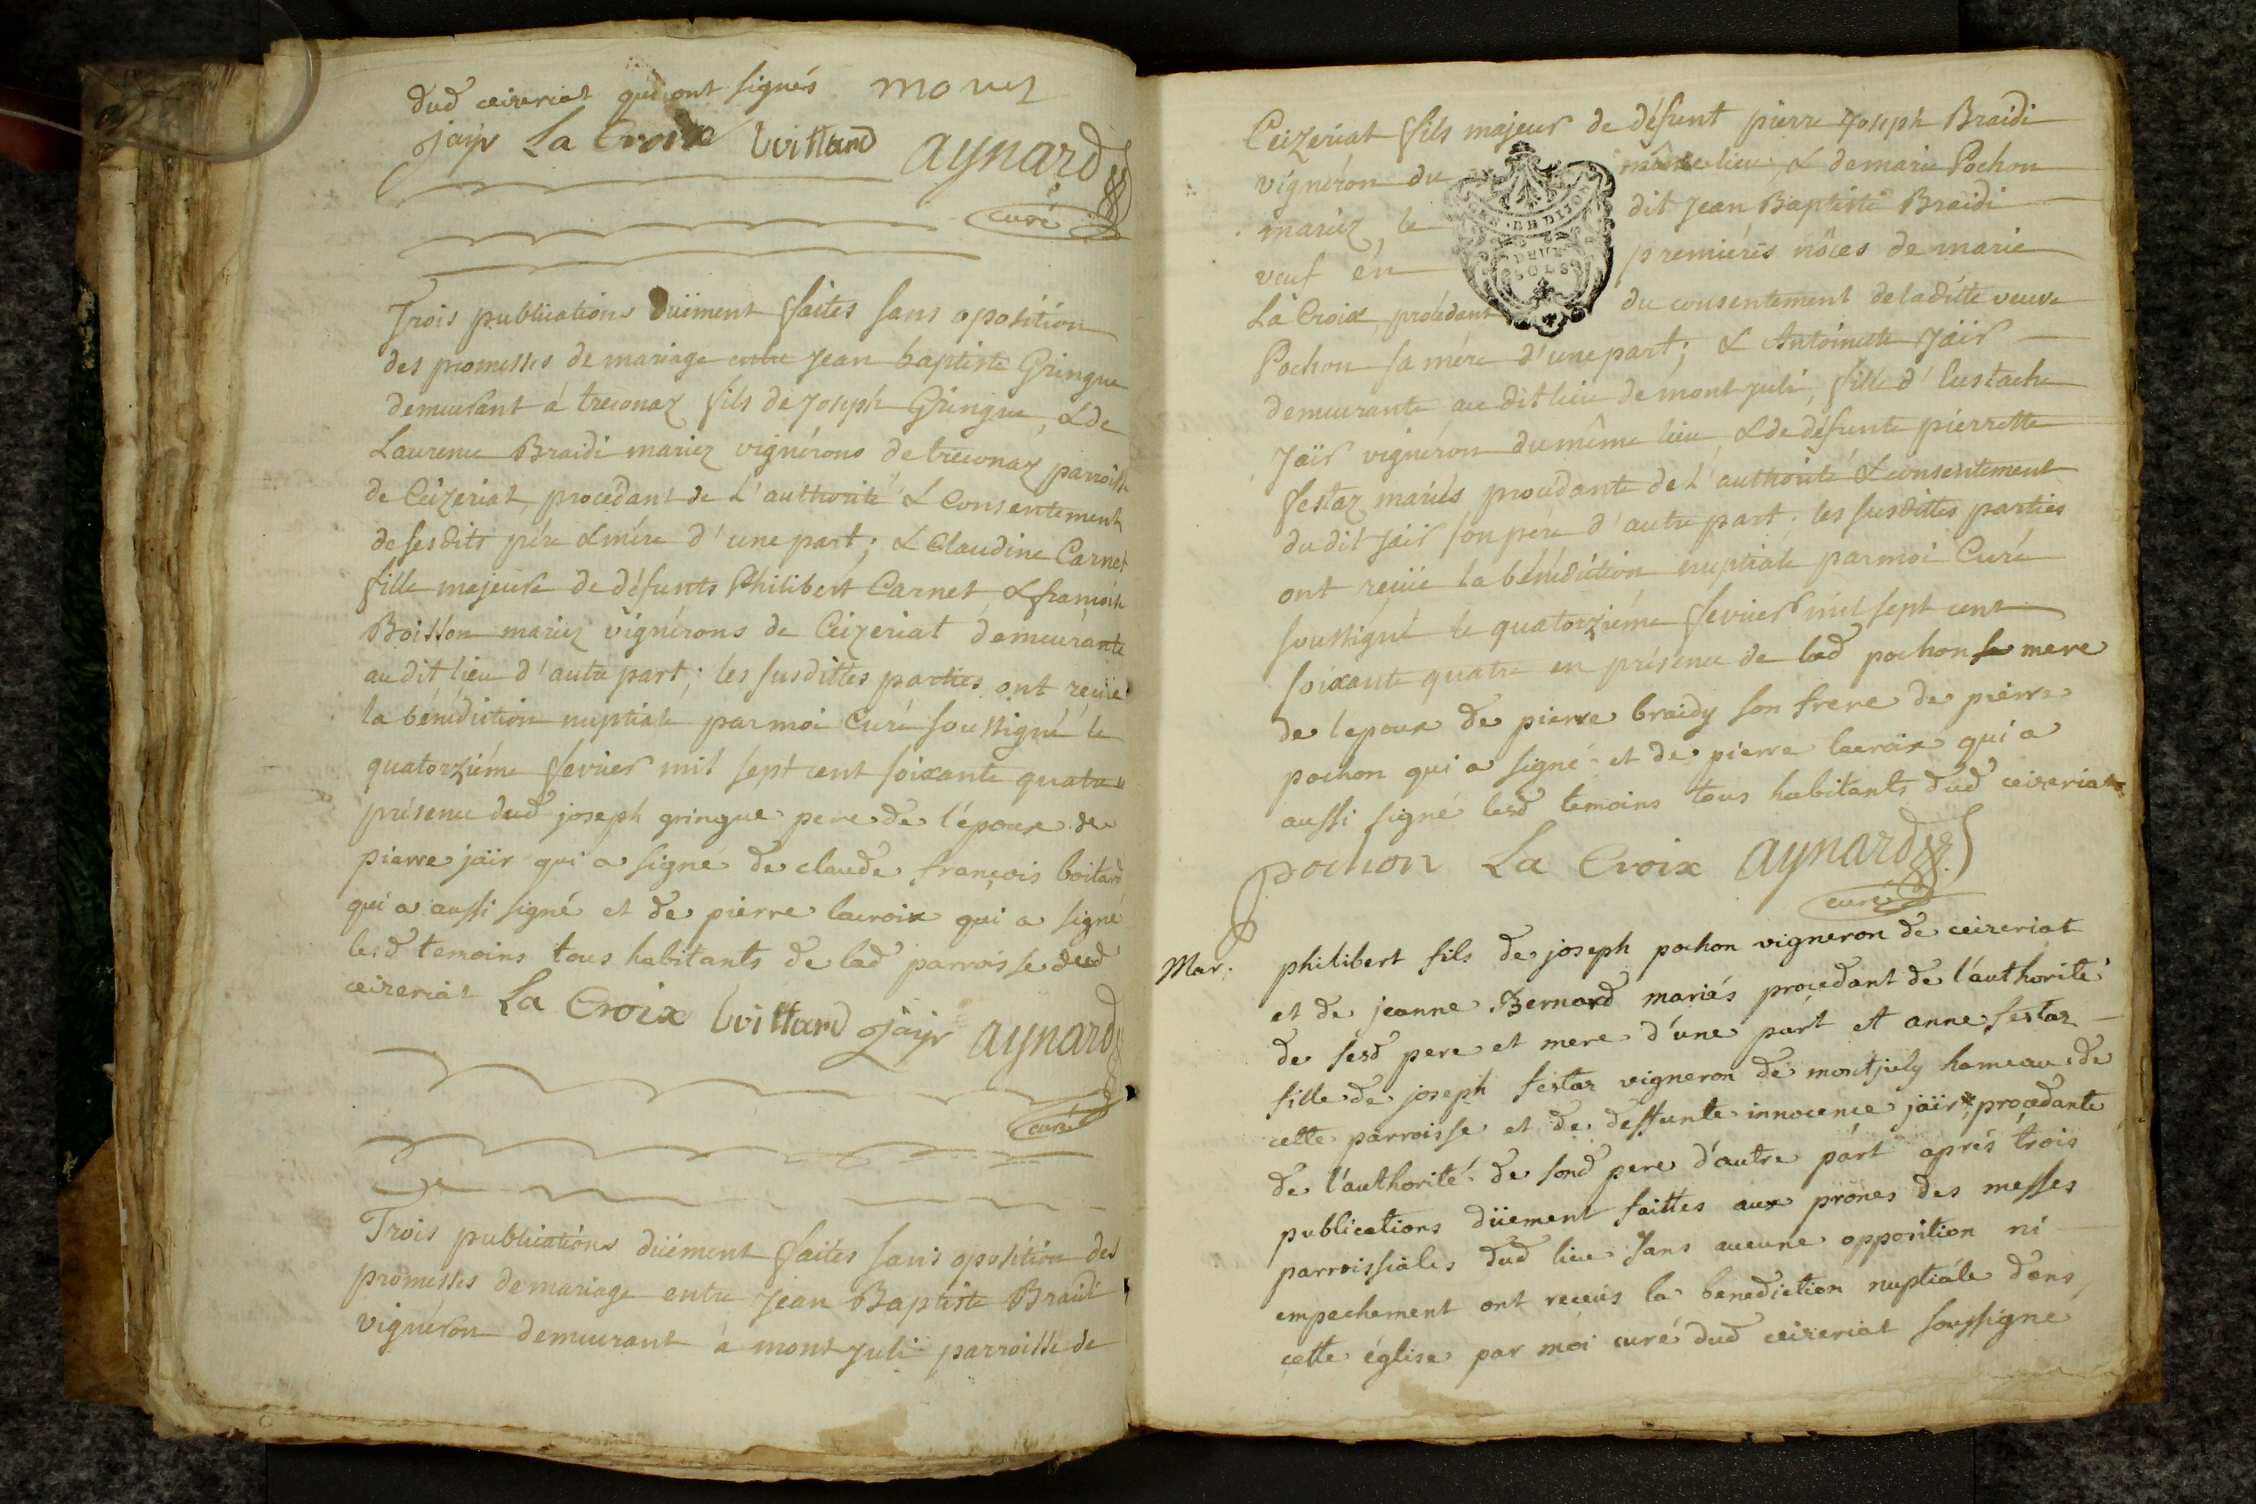 dud ceizeriat qui ont signés movez
jayr La Croix boittard aynard
curé
Trois publications düiment faites sans oposition
des promesses de mariage entre jean baptiste Gringue
demeurant á treconaz fils de joseph Gringue, & de
Laurence Braidi mariez vignérons de treconaz parroisse
de Ceizeriat, procédant de L'authorité & Consentement
de sesdits pére & mére d'une part; & Claudine Carnet
fille majeure de défunts Philibert Carnet & francoise
Boisson mariez vignérons de Ceizeriat demeurante
au dit lieu d'autre part; les susdittes parties ont reçüe
la bénédiction nuptiale par moi Curé soussigné le
quatorziéme fevrier mil sept cent soixante quatre
présence dud joseph gringue pere de l'époux de
pierre jäir qui a signé de claude françois boitard
qui a aussi signé et de pierre lacroix qui a signé
lesd temoins tous habitants de lad parroisse dud
ceizeriat La Croix boittard jayr aynard
curé
Trois publications düément faites sans oposition des
promesses de mariage entre Jean Baptiste Braidi
vignéron demeurant á mont juli parroisse de
Ceizeriat fils majeur de défunt pierre Joseph Braidi
vignéron du même lieu, & de marie Pochon
mariez, le dit Jean Baptiste Braidi
veuf én premiéres nôces de marie
La Croix, procédant du consentement de laditte veuve
Pochon sa mére d'une part; & Antoinette Jäir
demeurante au dit lieu de mont juli, fille d'Eustache
Jäir vignéron du même lieu & de défunte pierrette
festaz mariés procédante de L'authorité & consentement
du dit Jäir son pére d'autre part. les susdittes parties
ont reçüe la bénédiction nuptiale par moi Curé
soussigné le quatorziéme fevrier mil sept cent
soixante quatre en présence de lad pochon sa mere
de l'epoux de pierre braidy son frere de pierre
pochon qui a signé et de pierre lacroix qui a
aussi signé lesd temoins tous habitants dud ceizeriat
pochon La Croix aynard
curé
Mar: philibert fils de joseph pochon vigneron de ceizeriat
et de jeanne Bernard mariés procedant de l'authorité
de sesd pere et mere d'une part et anne festaz
fille de joseph festaz vigneron de montjuly hameau de
cette parroisse et de deffunte innocence jäir procedante
de l'authorité de sond pere d'autre part aprés trois
publications düement faittes aux prônes des messes
parroissiales dud lieu sans aucune opposition ni
empechement ont receus la benediction nuptiale dans
cette église par moi curé dud ceizeriat soussigné